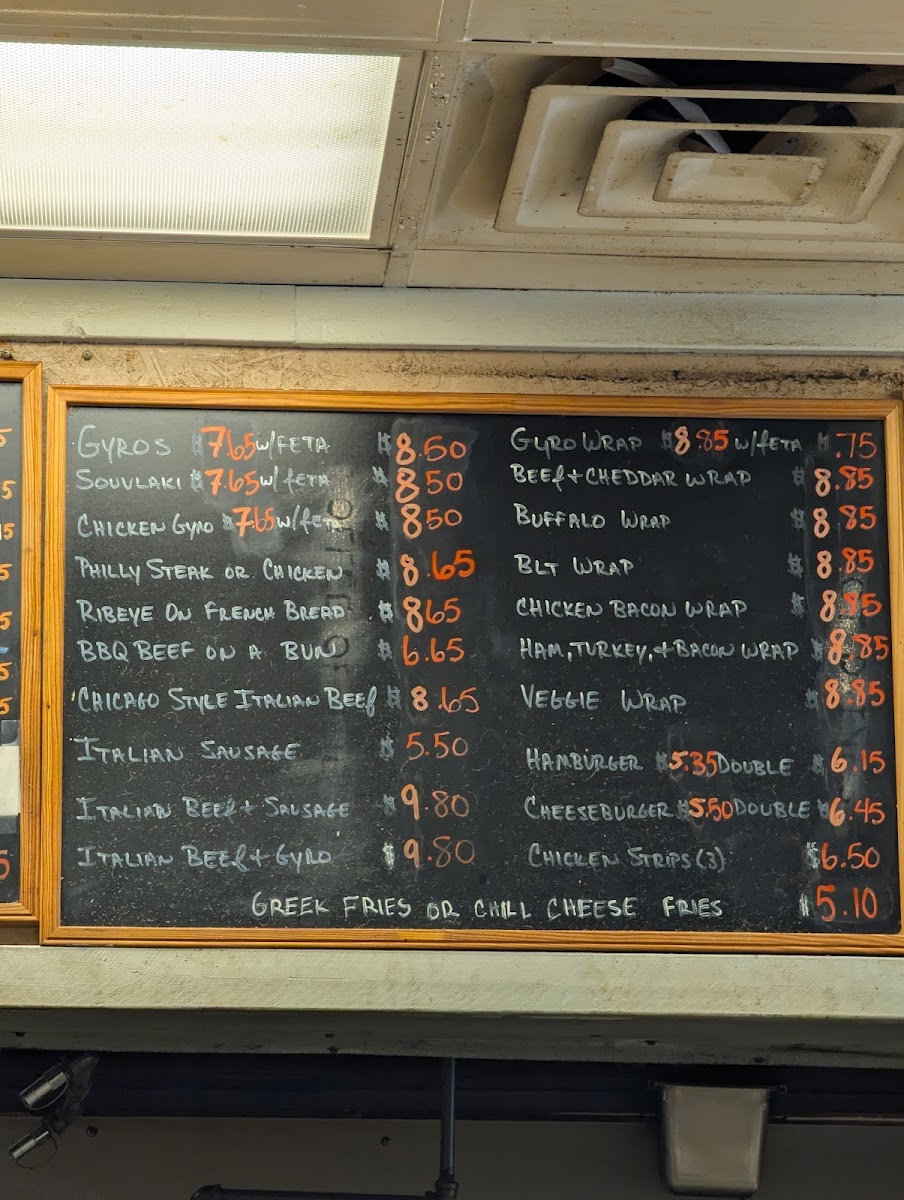 GYROS $7.65 W/FETA $8.50
SOUVLAKI $7.65 W/ FETA $850
CHICKEN GYRO $7.65 W/FETA $850
PHILLY STEAK OR CHICKEN $8.65
RIBEYE ON FRENCH BREAD $865
BBQ BEEF ON A BUN $6.65
CHICAGO STYLE ITALIAN BEEF $8.65
ITALIAN SAUSAGE $5.50
ITALIAN BEEF + SAUSAGE $9.80
ITALIAN BEEF + GYRO $9.80
GYRO WRAP $8.85 W/FETA $.75
BEEF + CHEDDAR WRAP $8.85
BUFFALO WRAP $8.85
BLT WRAP $8.85
CHICKEN BACON WRAP $8.85
HAM, TURKEY, + BACON WRAP $8.85
VEGGIE WRAP $8.85
HAMBURGER $5.35 DOUBLE $6.15
CHEESEBURGER $5.50 DOUBLE $6.45
CHICKEN STRIPS (3) $6.50
GREEK FRIES OR CHILL CHEESE FRIES $5.10